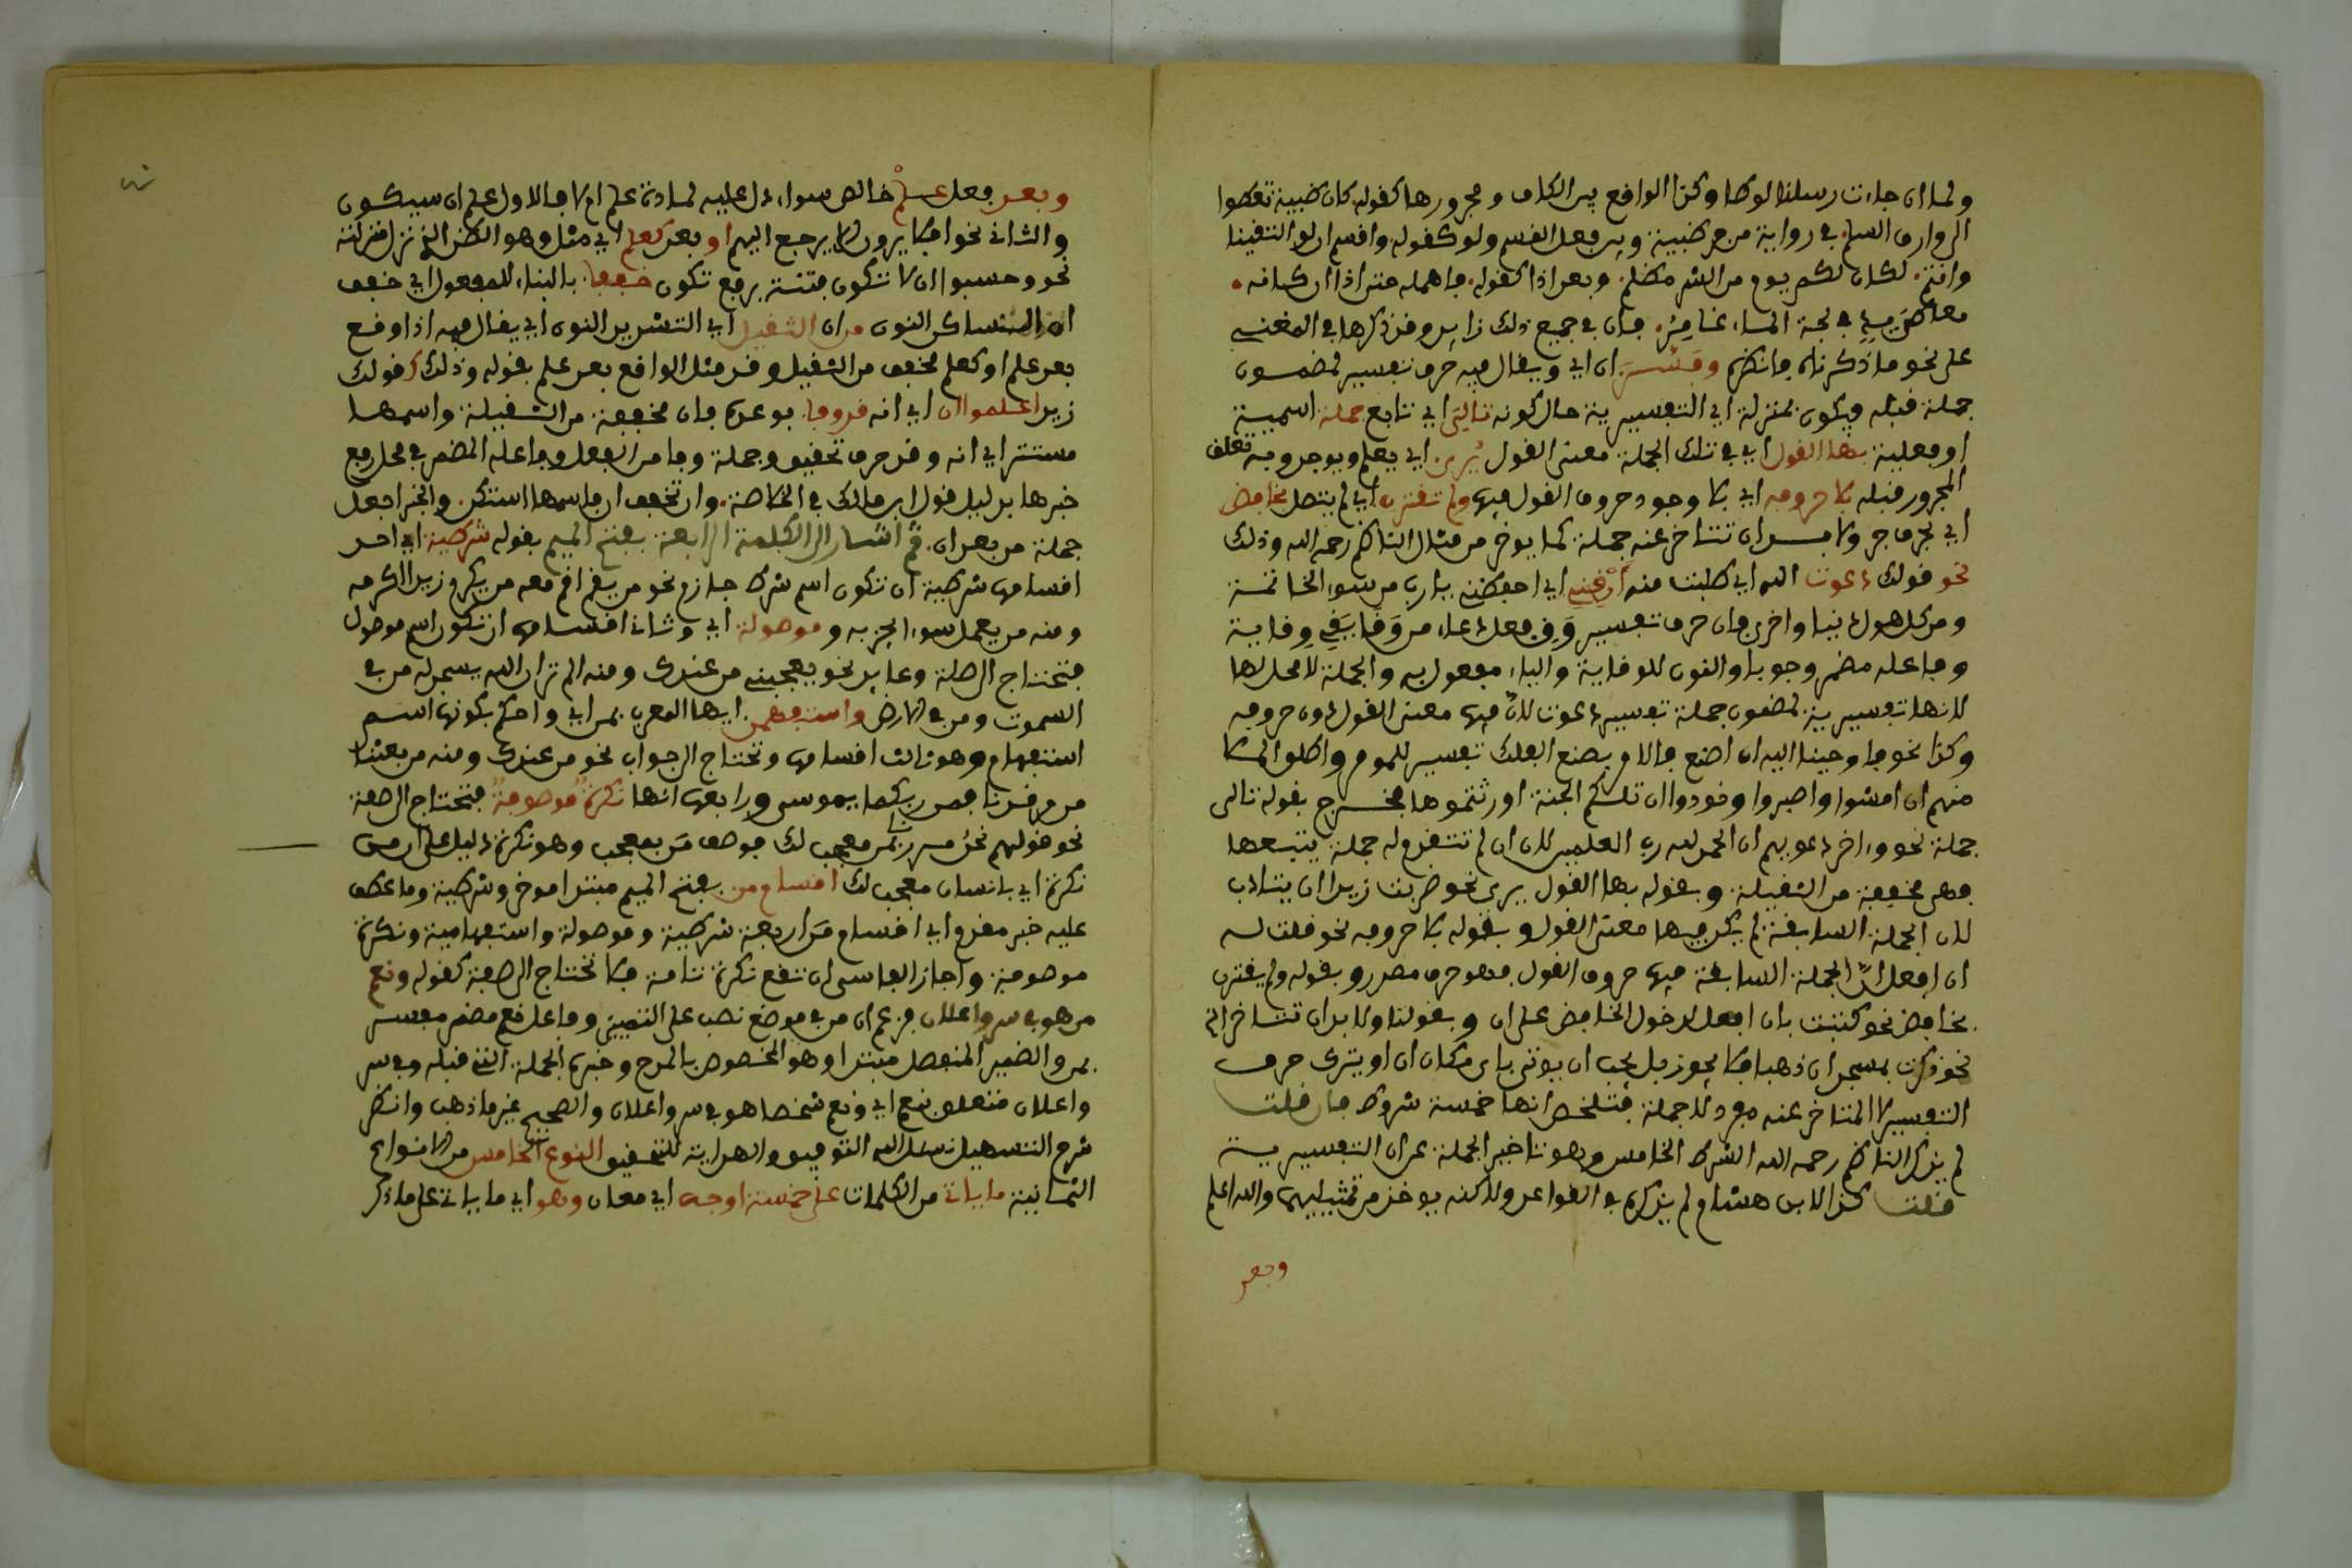 ولما ان جاءت رسلنا لوطا وكذا الواقع بين الكاف ومجرورها كقوله كان ظبية تعطوا
الى وارق السلم في رواية من جر ظبية وبين فعل القسم ولو كقوله واقسم ان لو التقينا
وانتم لكان لكم يوم من الشر مظلم وبعد اذا كقوله فامهله حتى اذا ان كانه
معاطي يد في لجة الماء غامر فان في جميع ذلك زايد وقد ذكرها في المغني
على نحو ما ذكرناه فانظره وفسرن ان اي ويقال فيه حرف تفسير لمضمون
جملة قبله ويكون بمنزلة اي التفسيرية حال كونه تاليتي اي تابع جملة اسمية
او فعلية بها القول اي في تلك الجملة معنى القول يرى اي يعلم ويوجد وبه تعلق
المجرور قبله لا حروفه اي لا وجود حروف القول فيها ولم تقترن اي لم يتصل بخافض
اي بحرف جر ولا بد ان تتاخر عنه جملة كما يوخذ من مثال الناظم رحمه الله وذلك
نحو قولك دعوت الله اي طلبت منه ان قني اي احفظني يا رب من سوء الخاتمة
ومن كل هول دنيا واخرى فان حرف تفسير وق فعل دعاء من وقا يقي وقاية
وفاعله مضمر وجوبا والنون للوقاية والياء مفعول به والجملة لا محل لها
لانها تفسيرية لمضمون جملة تفسير دعوت لان فيها معنى القول دون حروفه
وكذا نحو فاوحينا اليه ان اصنع فالامر بصنع الفلك تفسير للموحى وانطلق الملا
منهم ان امشوا واصبروا ونودوا ان تلكم الجنة اورثتموها فخرج بقوله تالى
جملة نحو واخر دعويهم ان الحمد لله رب العلمين لان ان لم تتقدم له جملة يتبعها
فهى مخففة من الثقيلة وبقوله بها القول يرى نحو ضربت زيدا ان يتادب
لان الجملة السابقة لم يكن فيها معنى القول وبقوله لا حروفه نحو قلت له
ان افعل لان الجملة السابقة فيها حروف القول فهو حرف مصدر وبقوله ولم يقترن
بخافض نحو كتبت بان افعل لدخول الخافض على ان وبقولنا ولا بد ان تتاخر الخ
نحو ذكرت بمسجد ان ذهبا فلا يجوز بل يجب ان يوتى باى مكان ان او يترك حرف
التفسير لان المتاخر عنه مفرد لا جملة فتلخص انها خمسة شروط فان قلت
لم يذكر الناظم رحمه الله الشرط الخامس وهو تاخير الجملة عن ان التفسيرية
قلت كذا لابن هشام لم يذكره في القواعد ولاكنه يوخذ من تمثيليهما والله اعلم
وبعد
وبعد فعل علم خالص سواء دل عليه لمادة علم ام لا فالاول علم ان سيكون
والثاني نحو افلا يرون الا يرجع اليهم او بعد كعلم اي مثله وهو الظن الذي نزل منزلته
نحو وحسبوا ان لا تكون فتنة برفع تكون خففا بالبناء للمفعول اي خفف
ان الساكن النون من ان الثقيل اي التشديد النون اي يقال فيه اذا وقع
بعد علم او كعلم مخفف من الثقيل وقد مثل الواقع بعد علم بقوله وذلك كقولك
زيد اعلموا ان اي انه قد وفا بوعده فان مخففة من الثقيلة واسمها
مستتر اي انه وقد حرف تحقيق وجملة وفا من الفعل وفاعله المضمر في محل رفع
خبرها بدليل قول ابن مالك في الخلاصة وان تخفف ان فاسمها استكن والخبر اجعل
جملة من بعد ان ثم اشار الى الكلمة الرابعة بفتح الميم بقوله شرطية اي احد
اقسامها شرطية ان تكون اسم شرط جازم نحو من يقم اقم معه من يكرم زيدا اكرمه
ومنه من يعمل سوءا يجز به وموصولة اي وثاني اقسامها ان تكون اسم موصول
فتحتاج الى صلة وعايد نحو يعجبني من عندك ومنه الم تر ان الله يسجد له من في
السموت ومن في الارض واستفهمن ايها المعرب بمن اي واحكم بكونها اسم
استفهام وهو ثالث اقسامها وتحتاج الى جواب نحو من عندك ومنه من بعثنا
من مرقدنا فمن ربكما يموسى ورابعها انها نكرة موصوفة فتحتاج الى صفة
نحو قولهم نحو مررت بمن معجب لك فوصف من بمعجب وهو نكرة دليل على ان من
نكرة اي بانسان معجب لك اقسام من بفتح الميم مبتدا موخر وشرطية وما عطف
عليه خبر مقدم اي اقسام من اربعة شرطية وموصولة واستفهامية ونكرة
موصوفة واجاز الفاسي ان تقع نكرة تامة فلا تحتاج الى صفة كقوله ونعم
من هو في سر واعلان فزعم ان من في موضع نصب على التمييز وفاعل نعم مضمر مفسر
بمن والضمير المنفصل مبتدا وهو المخصوص بالمدح وخبره الجملة التي قبله وفي سر
واعلان متعلق بنعم اي ونعم شخصا هو في سر واعلان والصحيح غير ما ذهب وانظر
شرح التسهيل نسئل الله التوفيق والهداية للتحقيق النوع الخامس من الانواع
الثمانية ما ياتي من الكلمات على خمسة اوجه اي معان وهو اي ما ياتي على ما ذكر